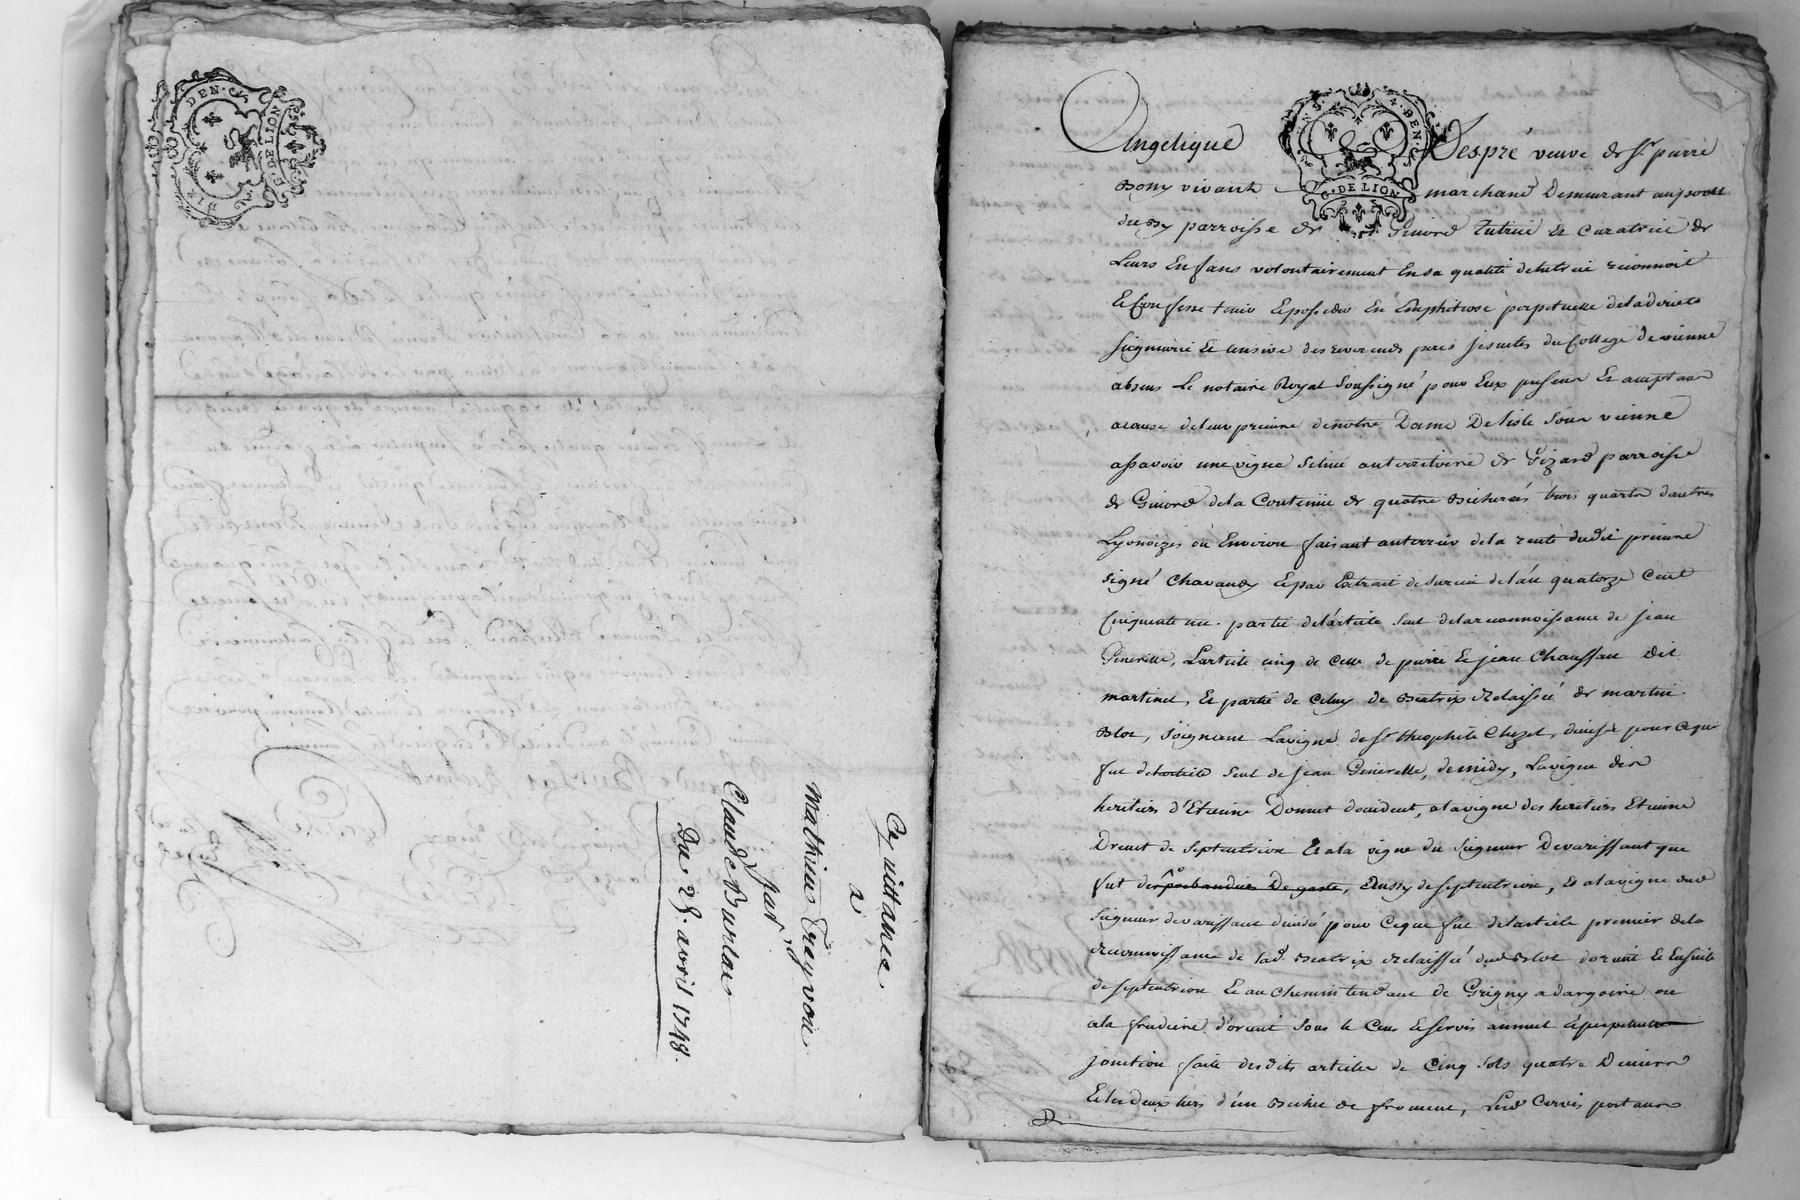 Quittance
a
Mathieu Treynon
par
Claude Burlat
Du 28. avril 1748.
DEN.
G. DE LION
DEN.
G. DE LION
Angelique Despré veuve de Sr. pierre
Bony vivant marchand Demeurant au
parroisse de Givord Tutrice et curatrice de
Leurs Enfans volontairement En sa qualité de tutrice reconnoit
Et Confesse tenir Et posseder En Emphiteose perpetuelle de la directe
seigneurie Et censive des reverends peres jesuites du College de vienne
absens Le notaire Royal soussigné pour Eux present Et acceptant
a cause de leur prieuré de notre Dame De lisle sous vienne
assavoir une vigne situé au territoire de Gizard parroisse
de Givord de la Contenüe de quatre Bicherées trois quarts d'autres
Lyonoizes ou Environ faisant au terrier de la rente dudit prieuré
signé Chavand Et par Extrait de l'an quatorze Cent
Cinquante partie de l'article seul de la reconnoissance de jean
Ginerelle, L'article cinq de Celle de pierre Et jean Chaussau dit
martinet, Et partie de Celuy de Beatrix Relaissée de martin
Blot, joignant La vigne de Sr. theophile Cluzel, divisé pour ce que
fut de l'article seul de jean Ginerelle, de midy, La vigne des
heritiers d'Etienne Donnet d'occident, a la vigne des heritiers Etienne
Drevet de septentrion Et a la vigne du seigneur De varissant que
fut De gaste, Aussy de septentrion, Et a la vigne dud.
seigneur de varissant divisée pour Ce que fut de l'article premier de la
reconnoissance de lad. Beatrix Relaissée dud. Blot d'orient Et Ensuite
de septentrion Et au chemin tendant de Grigny a dargoire ou
a la fredière d'orient sous le Cens Et servis annuel Et perpetuel
jonction faite desdits articles de Cinq sols quatre Deniers
Et les deux tiers d'un Bichet de froment, Led. Servis portant